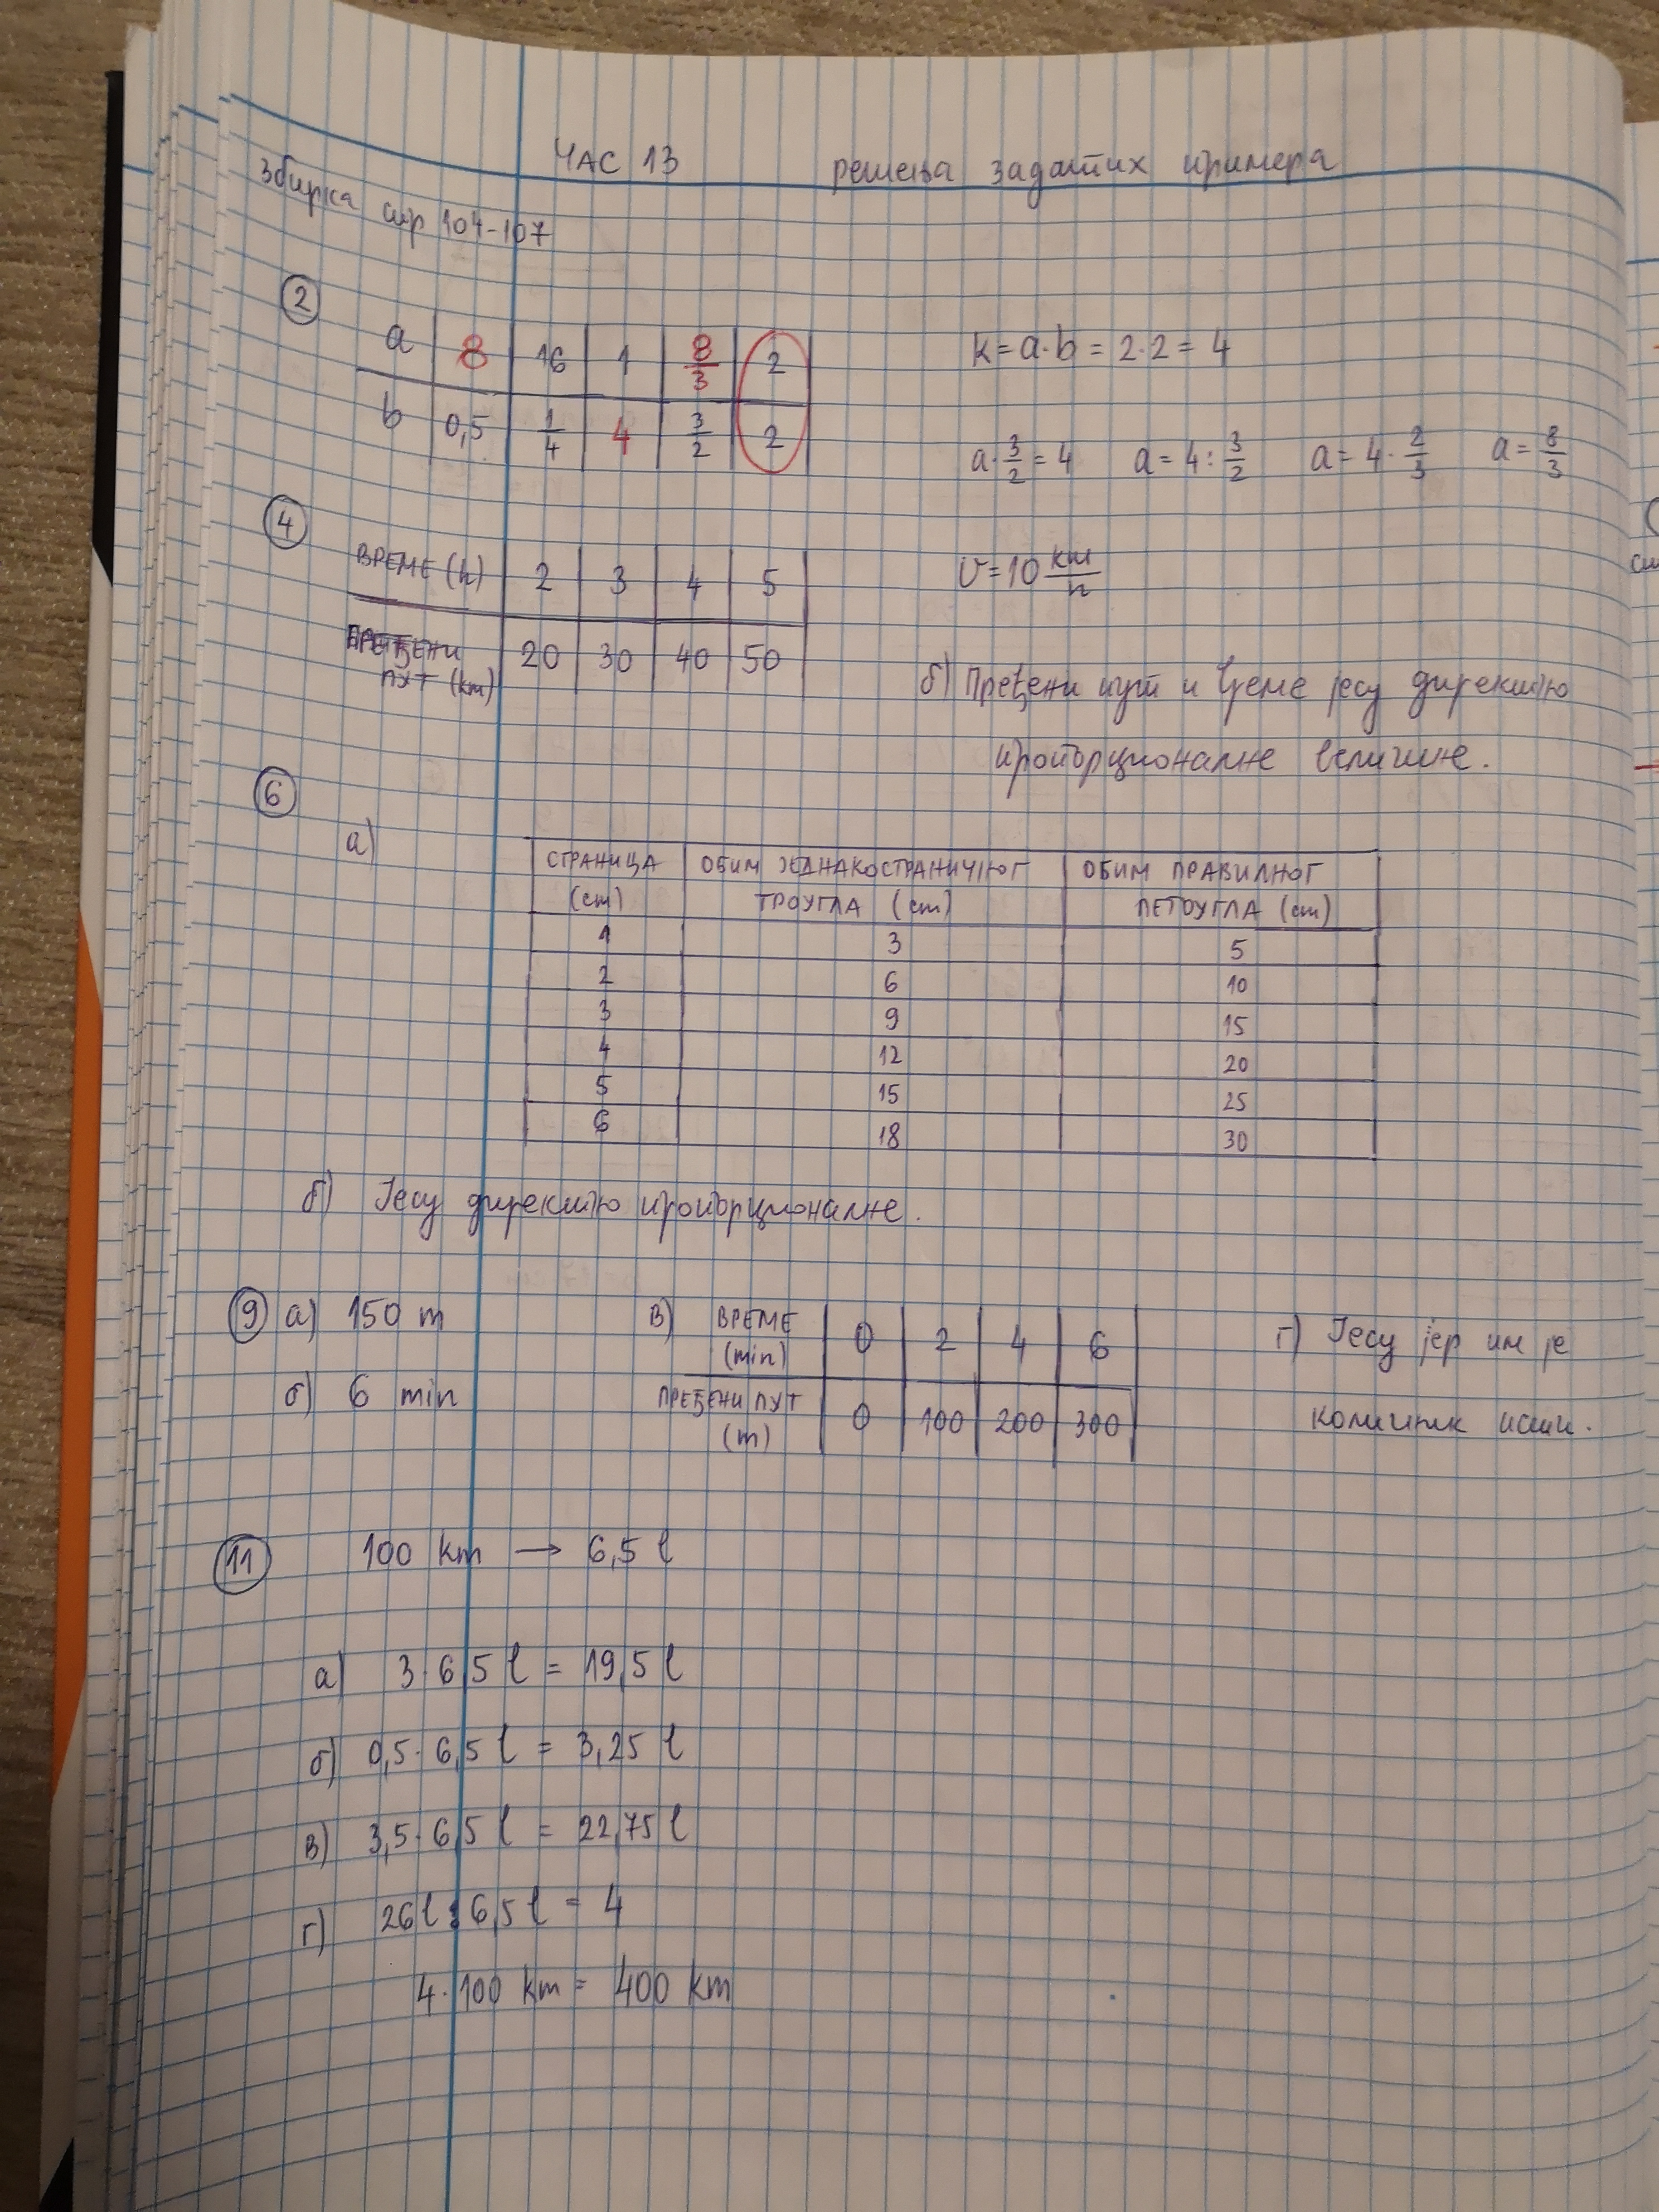 ЧАС 13 решења задатих примера
Збирка стр 104-107
2
a | 8 | 16 | 1 | 8/3 | 2
b | 0,5 | 1/4 | 4 | 3/2 | 2
k = a·b = 2·2 = 4
a·3/2 = 4 a = 4 : 3/2 a = 4·2/3 a = 8/3
4
ВРЕМЕ (h) | 2 | 3 | 4 | 5
ПРЕЂЕНИ
ПУТ (km) | 20 | 30 | 40 | 50
v = 10 km/h
б) Пређени пут и време јесу директно
пропорционалне величине.
6
а)
СТРАНИЦА | ОБИМ ЈЕДНАКОСТРАНИЧНОГ | ОБИМ ПРАВИЛНОГ
(cm) | ТРОУГЛА (cm) | ПЕТОУГЛА (cm)
1 | 3 | 5
2 | 6 | 10
3 | 9 | 15
4 | 12 | 20
5 | 15 | 25
6 | 18 | 30
б) Јесу директно пропорционалне.
9 а) 150 m
б) 6 min
в) ВРЕМЕ
(min) | 0 | 2 | 4 | 6
ПРЕЂЕНИ ПУТ
(m) | 0 | 100 | 200 | 300
г) Јесу јер им је
количник исти.
11 100 km → 6,5 l
а) 3·6,5 l = 19,5 l
б) 0,5·6,5 l = 3,25 l
в) 3,5·6,5 l = 22,75 l
г) 26 l : 6,5 l = 4
4·100 km = 400 km